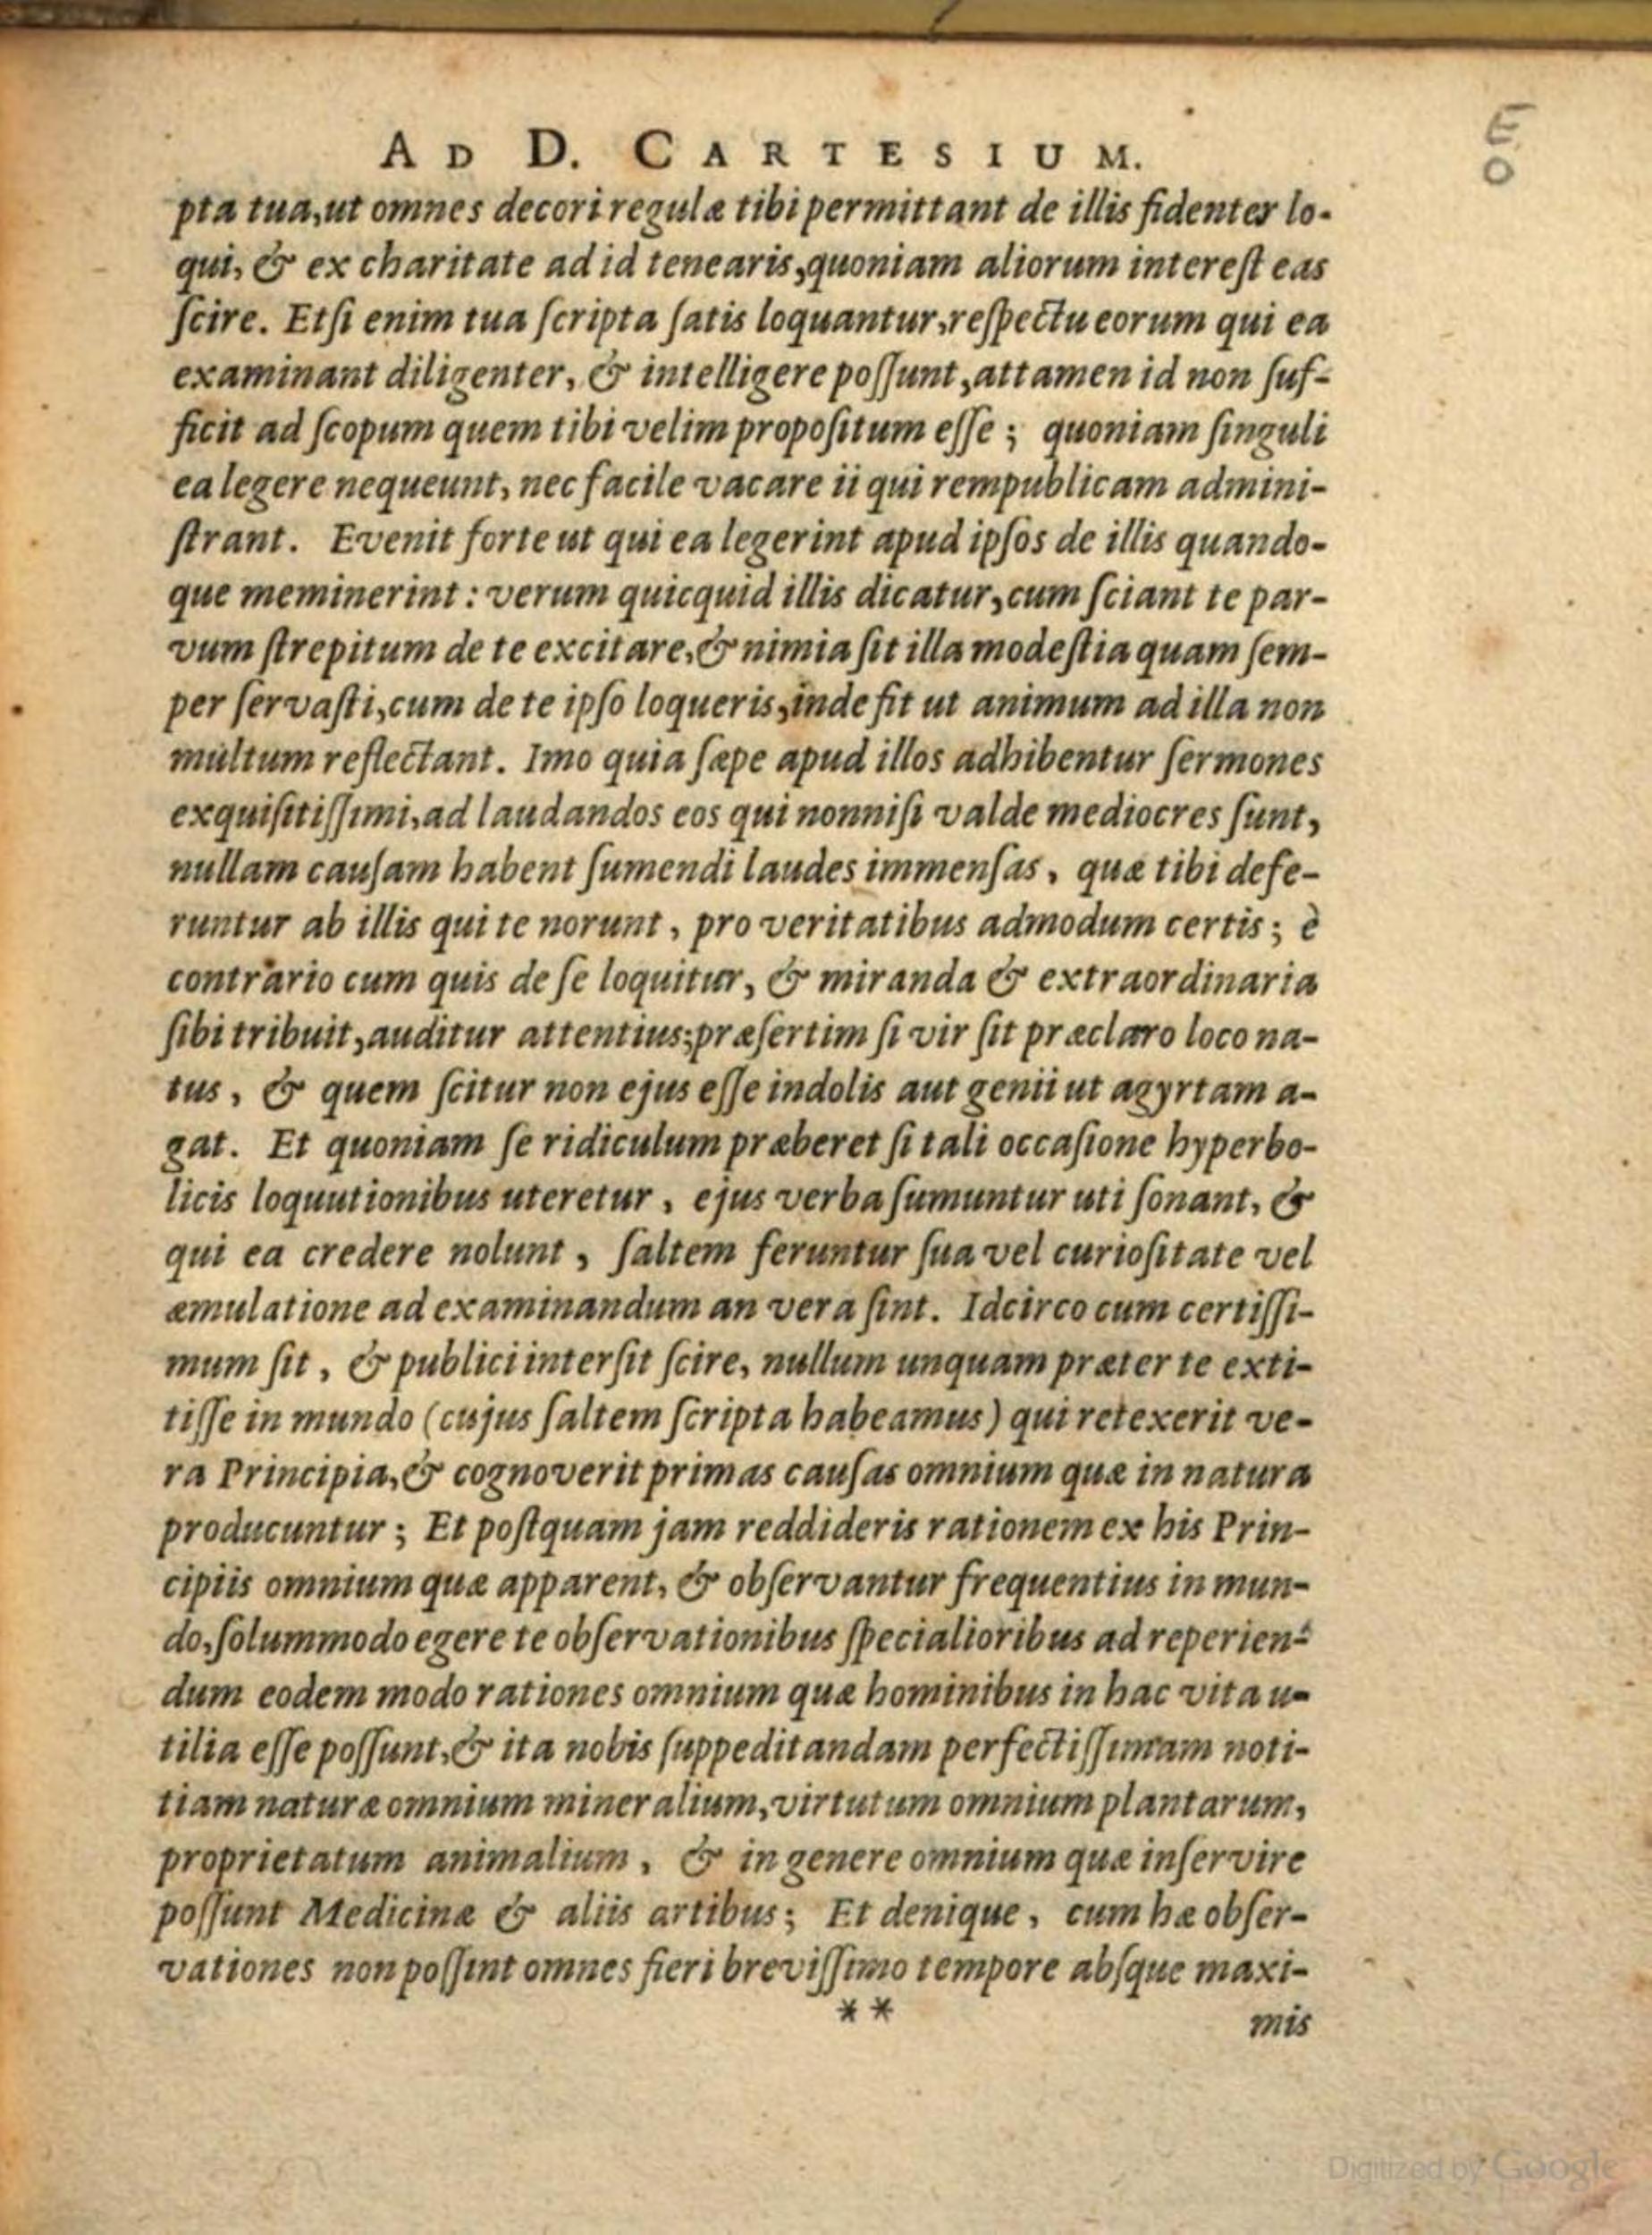 AD D. CARTESIUM.
E
O
pta tua, ut omnes decori regulæ tibi permittant de illis fidenter lo-
qui, & ex charitate ad id tenearis, quoniam aliorum intereſt eas
ſcire. Etſi enim tua ſcripta ſatis loquantur, reſpectu eorum qui ea
examinant diligenter, & intelligere poſſunt, attamen id non ſuf-
ficit ad ſcopum quem tibi velim propoſitum eſſe ; quoniam ſinguli
ea legere nequeunt, nec facile vacare ii qui rempublicam admini-
ſtrant. Evenit forte ut qui ea legerint apud ipſos de illis quando-
que meminerint : verum quicquid illis dicatur, cum ſciant te par-
vum ſtrepitum de te excitare, & nimia ſit illa modeſtia quam ſem-
per ſervaſti, cum de te ipſo loqueris, inde fit ut animum ad illa non
multum reflectant. Imo quia ſæpe apud illos adhibentur ſermones
exquiſitiſſimi, ad laudandos eos qui nonniſi valde mediocres ſunt,
nullam cauſam habent ſumendi laudes immenſas, quæ tibi defe-
runtur ab illis qui te norunt, pro veritatibus admodum certis ; è
contrario cum quis de ſe loquitur, & miranda & extraordinaria
ſibi tribuit, auditur attentius; præſertim ſi vir ſit præclaro loco na-
tus, & quem ſcitur non ejus eſſe indolis aut genii ut agyrtam a-
gat. Et quoniam ſe ridiculum præberet ſi tali occaſione hyperbo-
licis loquutionibus uteretur, ejus verba ſumuntur uti ſonant, &
qui ea credere nolunt, ſaltem feruntur ſua vel curioſitate vel
æmulatione ad examinandum an vera ſint. Idcirco cum certiſſi-
mum ſit, & publici interſit ſcire, nullum unquam præter te exti-
tiſſe in mundo (cujus ſaltem ſcripta habeamus) qui retexerit ve-
ra Principia, & cognoverit primas cauſas omnium quæ in natura
producuntur ; Et poſtquam jam reddideris rationem ex his Prin-
cipiis omnium quæ apparent, & obſervantur frequentius in mun-
do, ſolummodo egere te obſervationibus ſpecialioribus ad reperien-
dum eodem modo rationes omnium quæ hominibus in hac vita u-
tilia eſſe poſſunt, & ita nobis ſuppeditandam perfectiſſimam noti-
tiam naturæ omnium mineralium, virtutum omnium plantarum,
proprietatum animalium, & in genere omnium quæ inſervire
poſſunt Medicinæ & aliis artibus ; Et denique, cum hæ obſer-
vationes non poſſint omnes fieri breviſſimo tempore abſque maxi-
**
mis
Digitized by Google